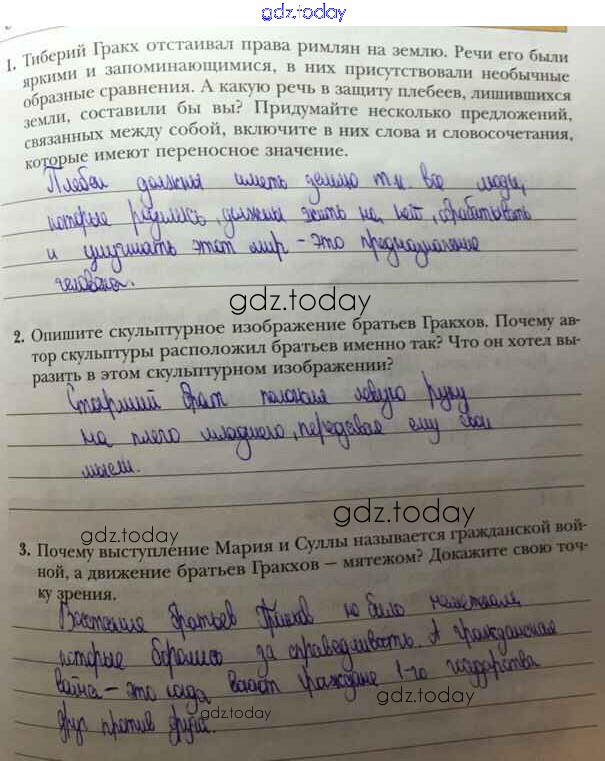 gdz.today
1. Тиберий Гракх отстаивал права римлян на землю. Речи его были
яркими и запоминающимися, в них присутствовали необычные
образные сравнения. А какую речь в защиту плебеев, лишившихся
земли, составили бы вы? Придумайте несколько предложений,
связанных между собой, включите в них слова и словосочетания,
которые имеют переносное значение.
Плебеи должны иметь землю т.к. все люди,
которые родились, должны жить на ней, обрабатывать
и улучшать этот мир – это предназначение
человека.
gdz.today
2. Опишите скульптурное изображение братьев Гракхов. Почему ав-
тор скульптуры расположил братьев именно так? Что он хотел вы-
разить в этом скульптурном изображении?
Старший брат положил левую руку
на плечо младшего, передавая ему свои
мысли.
gdz.today
gdz.today
3. Почему выступление Мария и Суллы называется гражданской вой-
ной, а движение братьев Гракхов – мятежом? Докажите свою точ-
ку зрения.
Восстание братьев Гракхов было мятежом,
которые боролись за справедливость. А гражданская
война – это когда воюют граждане 1-го государства
друг против друга.
gdz.today
gdz.today